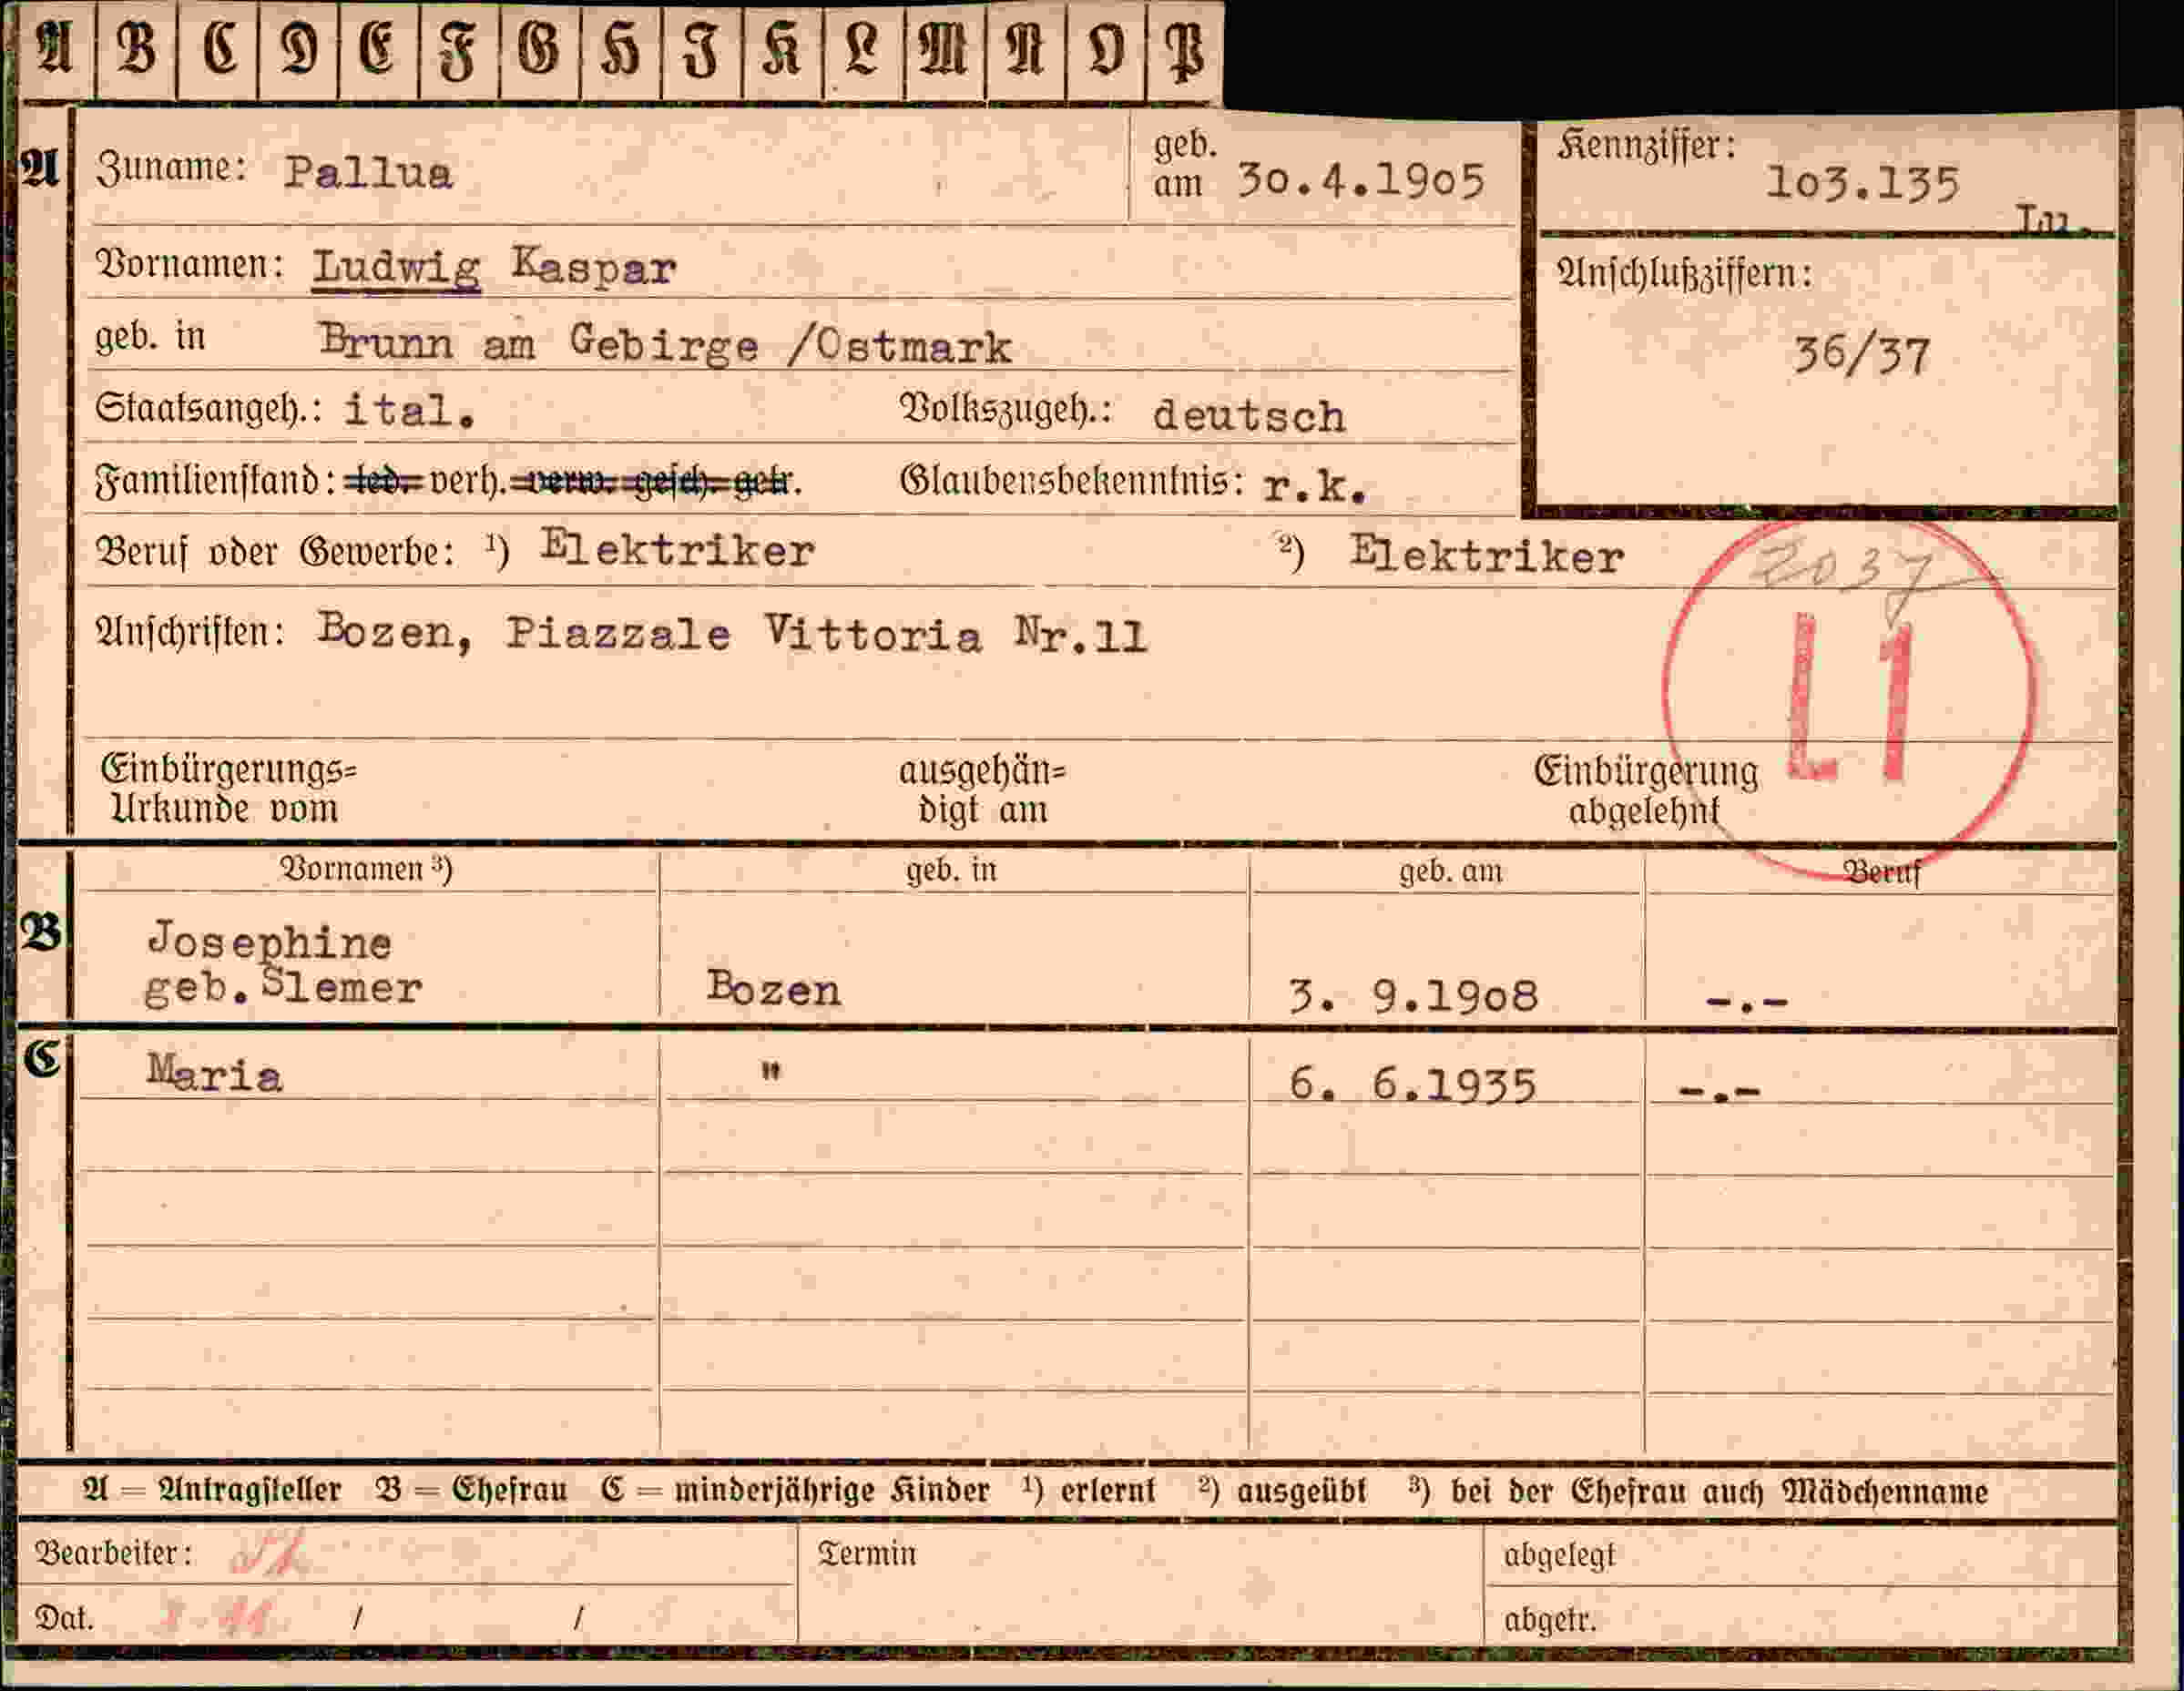 A B C D E F G H I K L M N O P
A Zuname: Pallua geb. am 30.4.1905 Kennziffer: 103.135
Vornamen: Ludwig Kaspar Anschlußziffern:
geb. in Brunn am Gebirge /Ostmark 36/37
Staatsangeh.: ital. Volkszugeh.: deutsch
Familienstand: led. verh. verw. gesch. getr. Glaubensbekenntnis: r.k.
Beruf oder Gewerbe: ¹) Elektriker ²) Elektriker 2037
Anschriften: Bozen, Piazzale Vittoria Nr.11
L1
Einbürgerungs= ausgehän= Einbürgerung
Urkunde vom digt am abgelehnt
Vornamen ³) geb. in geb. am Beruf
B Josephine
geb. Slemer Bozen 3. 9.1908 -.-
C Maria " 6. 6.1935 -.-
A = Antragsteller B = Ehefrau C = minderjährige Kinder ¹) erlernt ²) ausgeübt ³) bei der Ehefrau auch Mädchenname
Bearbeiter: Termin abgelegt
Dat. / / abgetr.